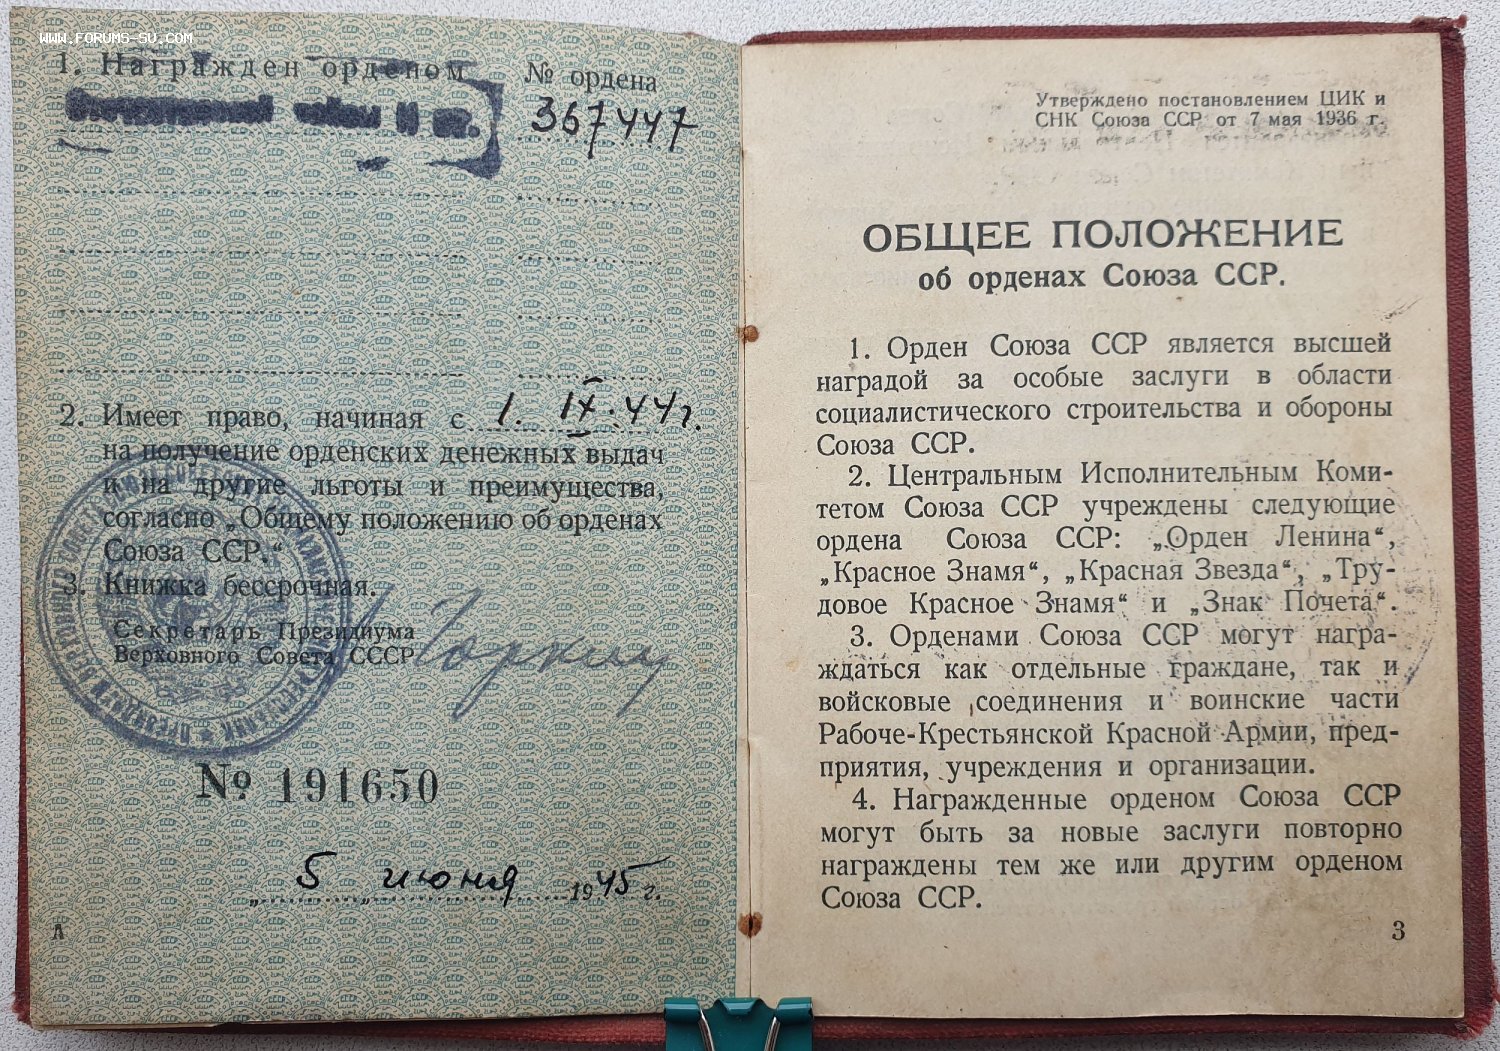 WWW.FORUMS-SU.COM
1. Награжден орденом
№ ордена
Отечественной войны II ст.
367447
2. Имеет право, начиная с 1. IX. 44 г.
на получение орденских денежных выдач
и на другие льготы и преимущества,
согласно „Общему положению об орденах
Союза ССР.“
3. Книжка бессрочная.
Секретарь Президиума
Верховного Совета СССР
Горкин
№ 191650
„ 5 „ июня 1945 г.
А
Утверждено постановлением ЦИК и
СНК Союза ССР от 7 мая 1936 г.
ОБЩЕЕ ПОЛОЖЕНИЕ
об орденах Союза ССР.
1. Орден Союза ССР является высшей
наградой за особые заслуги в области
социалистического строительства и обороны
Союза ССР.
2. Центральным Исполнительным Коми-
тетом Союза ССР учреждены следующие
ордена Союза ССР: „Орден Ленина“,
„Красное Знамя“, „Красная Звезда“, „Тру-
довое Красное Знамя“ и „Знак Почета“.
3. Орденами Союза ССР могут награ-
ждаться как отдельные граждане, так и
войсковые соединения и воинские части
Рабоче-Крестьянской Красной Армии, пред-
приятия, учреждения и организации.
4. Награжденные орденом Союза ССР
могут быть за новые заслуги повторно
награждены тем же или другим орденом
Союза ССР.
3